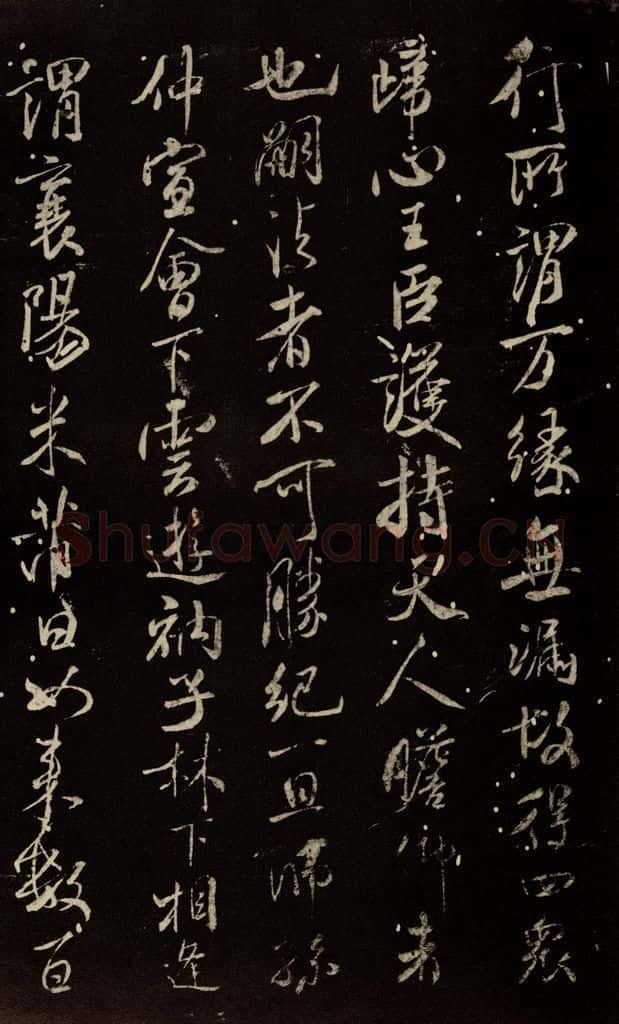 行所謂万缘無漏故得四衆
歸心王臣護持天人瞻仰者
也嗣法者不可勝紀一旦師孫
仲宣會下雲遊衲子林下相逢
謂襄陽米芾曰如来數百
Shufawang.cn